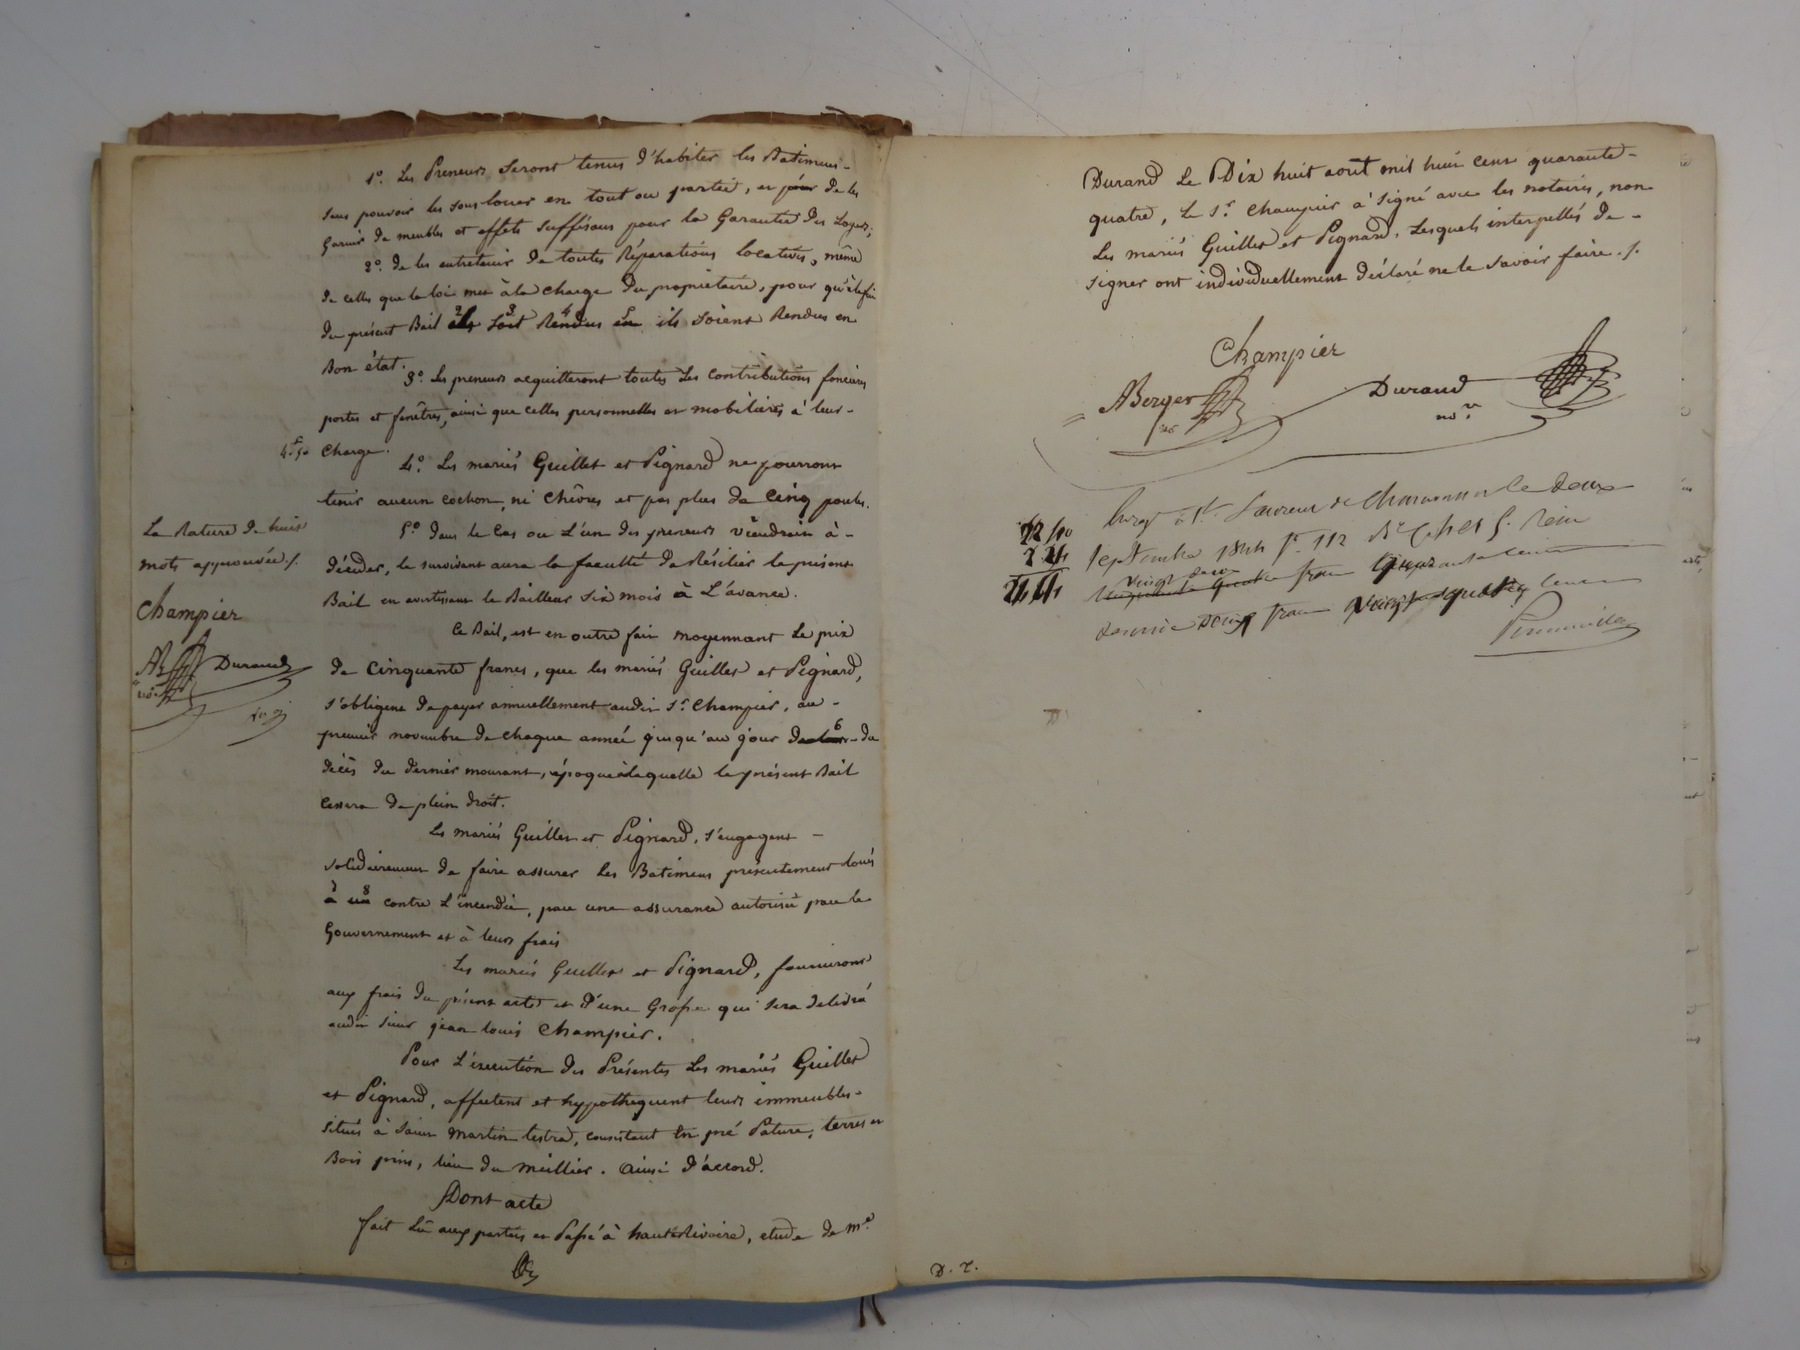 1°. Les Preneurs Seront tenus d'habiter les Batimens-
sans pouvoir les sous louer en tout ou partie, et pour de les
Garnir de meubles et effets suffisans pour la Garantie des Loyers;
2°. de les entretenir de toutes Réparations locatives, même
de celles que la loi met à la charge du propriétaire, pour qu'à la fin
du présent Bail ils soit Rendus en ils soient Rendus en
Bon état.
3°. Les preneurs acquitteront toutes les Contributions foncières
portes et fenêtres, ainsi que celles personnelles et mobilières à leur-
Charge.
4°. Les mariés Guillet et Pignard ne pourront
tenir aucun cochon, ni chèvres et pas plus de Cinq poules.
5° dans le Cas ou L'un des preneurs viendrait à-
décéder, le survivant aura la faculté de Résilier le présent
Bail en avertissant le Bailleur six mois à L'avance.
Ce Bail, est en outre fait moyennant Le prix
de Cinquante francs, que les mariés Guillet et Pignard,
s'obligent de payer annuellement audit Sr. Champier, au-
premier novembre de chaque année jusqu'au jour du
décès du dernier mourant, époque à laquelle le présent Bail
Cessera de plein droit.
Les mariés Guillet et Pignard, s'engagent-
solidairement de faire assurer les Batimens présentement loués
à un contre L'incendie, par une assurance autorisée par le
Gouvernement et à leurs frais
Les mariés Guillet et Pignard, fourniront
aux frais du présent acte et d'une Grosse qui sera délivré
audit sieur jean Louis Champier.
Pour L'exécution des Présentes Les mariés Guillet
et Pignard, affectent et hypothequent leurs immeubles-
situés à Saint Martin lestra, consistant En pré Pature, terres et
Bois pins, lieu du meillier. Ainsi d'accord.
Dont acte
fait Lu aux parties et Passé à hauterivoire, etude de me.
La Rature de huit
mots approuvée /.
Champier
AB Durand
Durand Le Dix huit août mil huit cent quarante-
quatre, Le Sr. Champier à Signé avec les notaires, non
Les mariés Guillet et Pignard. Lesquels interpellés de-
signer ont individuellement déclaré ne le savoir faire. /.
Champier
ABerger Durand
no.re
St. Laurent de Chamousset le deux
septembre 1844 f° 112
vingt deux francs quarante centimes
decime deux francs vingt quatre centimes
22 40
2 24
24 64
D. 2.